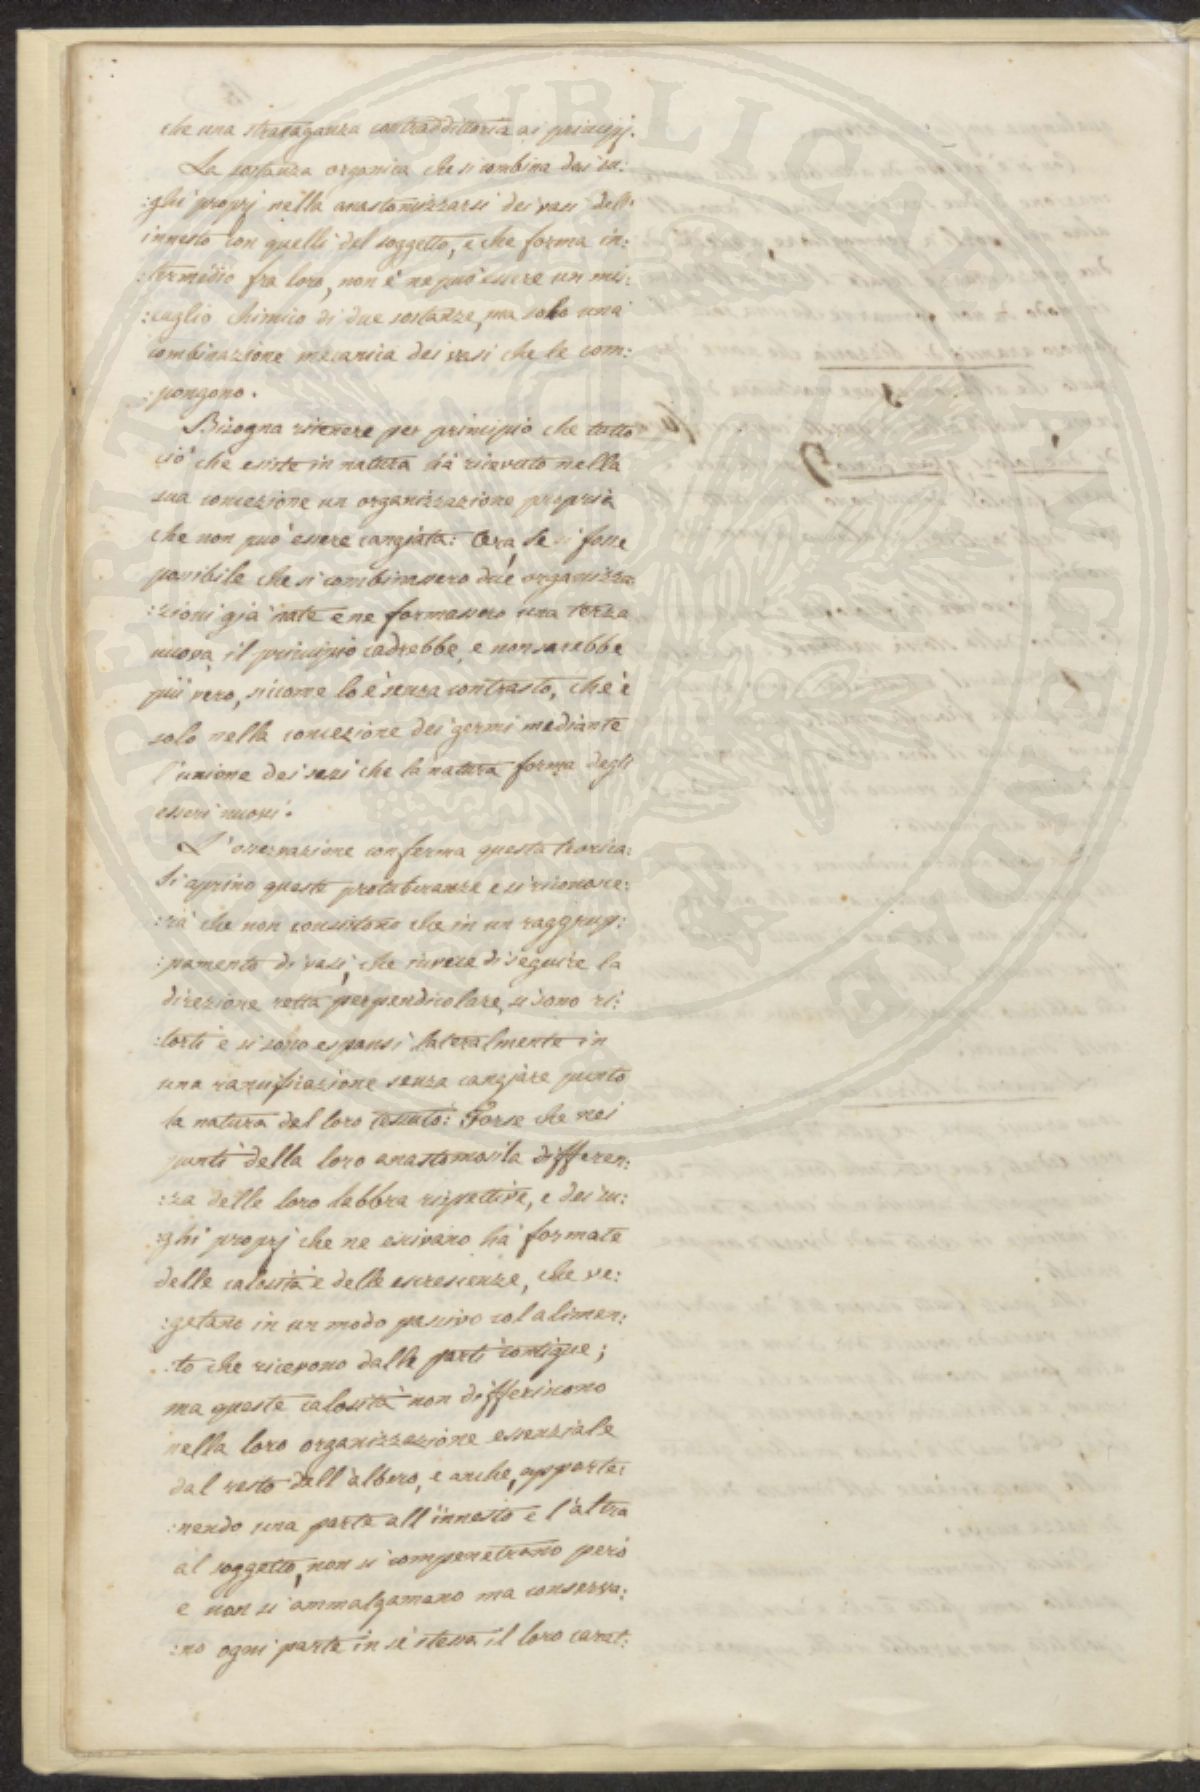 che una stravaganza contraddittoria ai principj.
La sostanza organica che si combina dei su:
:ghi proprj nella anastomizzarsi dei vasi dell'
innesto con quelli del soggetto, e che forma in:
:termedio fra loro, non è ne può essere un mi:
:scuglio chimico di due sostanze, ma solo una
combinazione mecanica dei vasi che le com:
:pongono.
Bisogna ritenere per principio che tutto
ciò che esiste in natura hà ricevuto nella
sua concezione un organizzazione propria
che non può essere cangiata: Ora, se si fosse
possibile che si combinassero due organizza:
:zioni già nate e ne formassero una terza
nuova, il principio cadrebbe, e non sarebbe
più vero, siccome lo è senza contrasto, che è
solo nella concezione dei germi mediante
l'unione dei sessi che la natura forma degli
esseri nuovi.
L'osservazione conferma questa teorica:
Si aprino queste protuberanze e si riconosce:
:rà che non consistono che in un raggrup:
:pamento di vasi, che invece di seguire la
direzione retta perpendicolare, si sono ri:
:torti e si sono espansi lateralmente in
una ramificazione senza cangiare punto
la natura del loro tessuto: Forse che nei
punti della loro anastomosi la differen:
:za delle loro labbra rispettive, e dei su:
:ghi proprj che ne escivano hà formate
delle calosità e delle escrescenze, che ve:
:getano in un modo passivo col alimen:
:to che ricevono dalle parti contigue;
ma queste calosità non differiscono
nella loro organizzazione essenziale
dal resto dell'albero, e anche, apparte:
:nendo una parte all'innesto e l'altra
al soggetto, non si compenetrano però
e non si ammalgamano ma conserva:
:no ogni parte in sè stessa il loro carat: